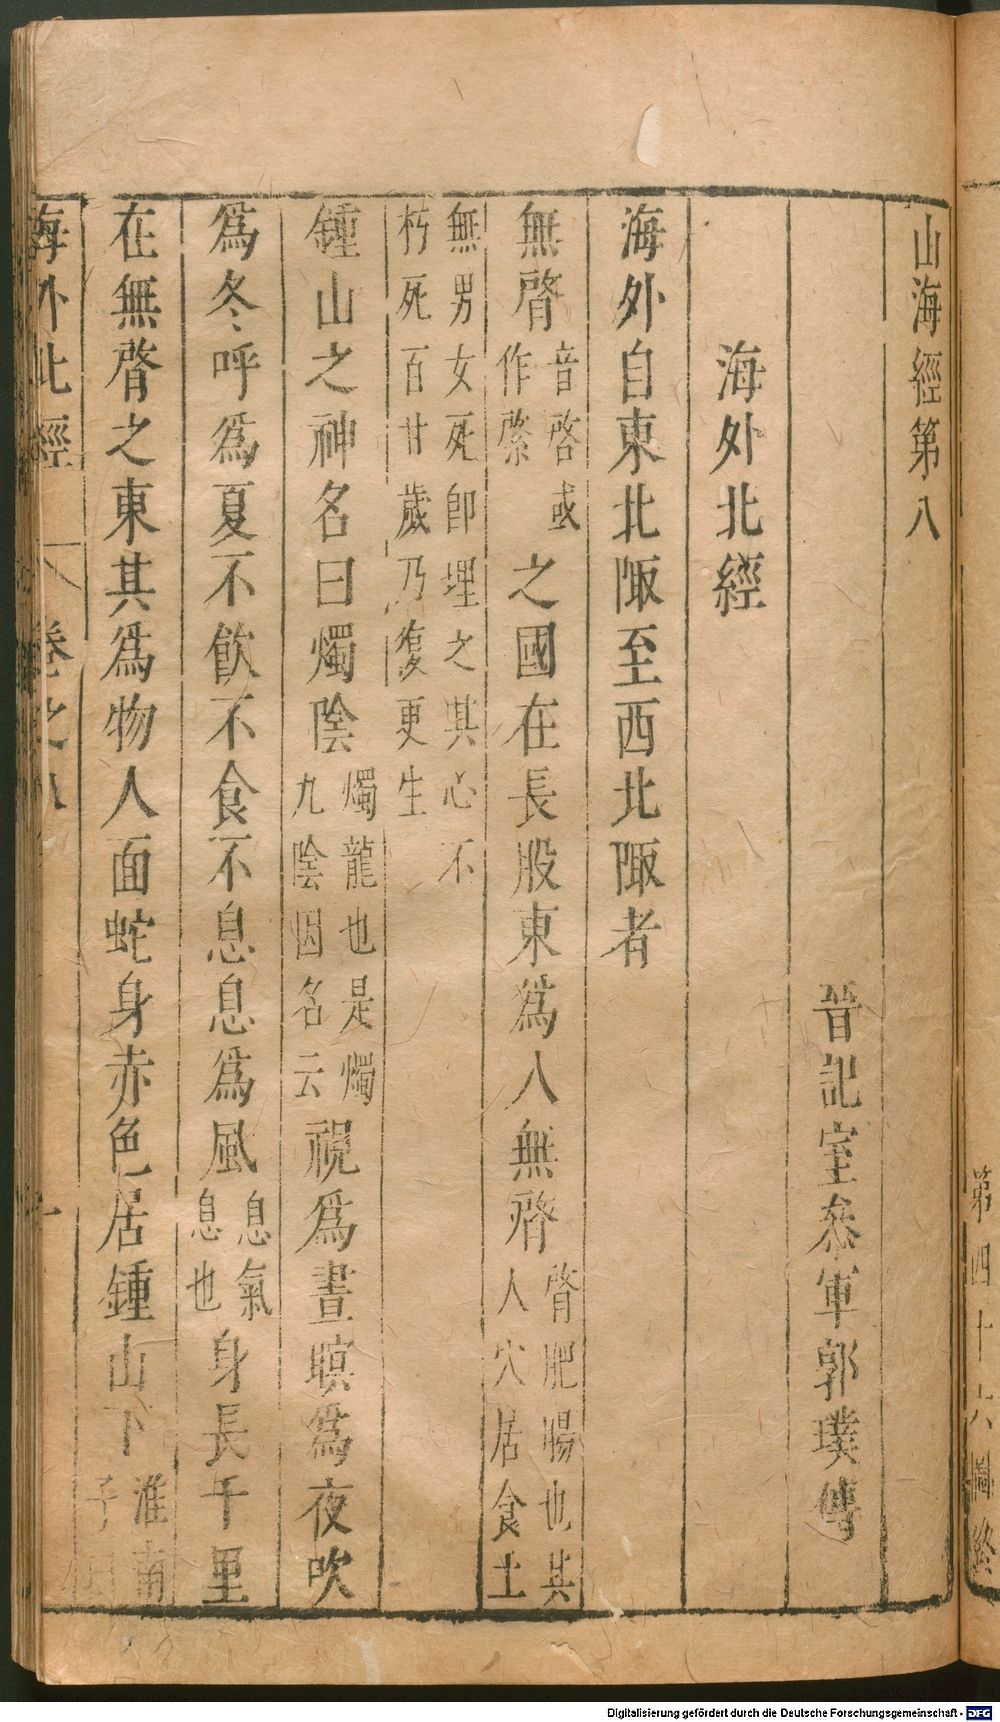 第四十六圖終
山海經第八
晉記室叅軍郭璞傳
海外北經
海外自東北陬至西北陬者
無䏿音啓或作綮之國在長股東爲人無䏿䏿肥腸也其人穴居食土
無男女死卽埋之其心不朽死百廿歲乃復更生
鍾山之神名曰燭陰燭龍也是燭九陰因名云視爲晝暝爲夜吹
爲冬呼爲夏不飲不食不息息爲風息氣息也身長千里
在無䏿之東其爲物人面蛇身赤色居鍾山下淮南子
海外北經 卷之八 一
Digitalisierung gefördert durch die Deutsche Forschungsgemeinschaft - DFG